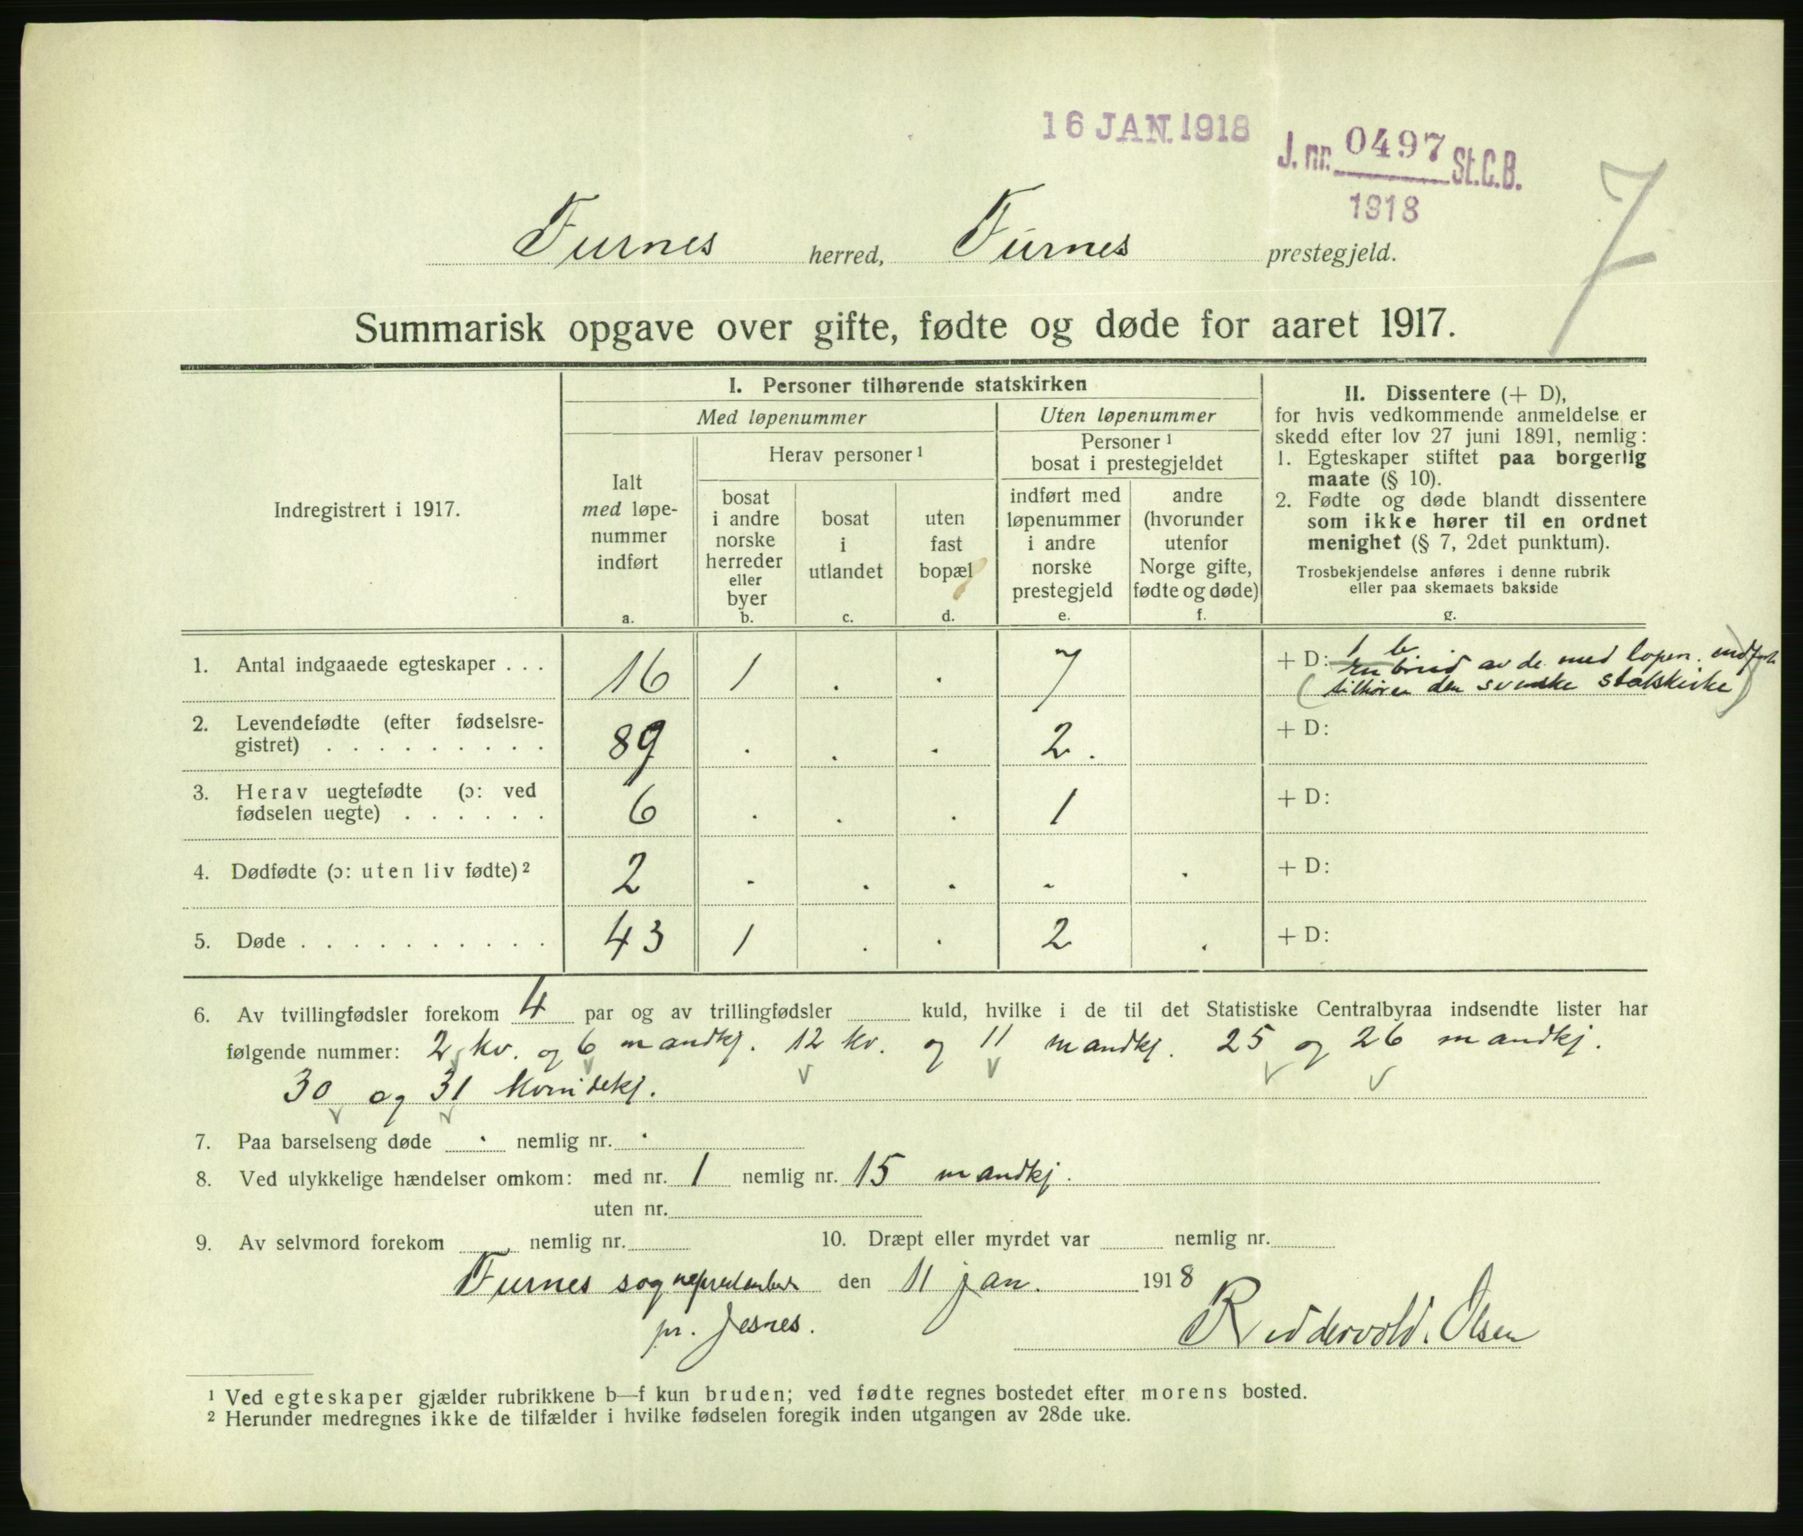 16 JAN. 1918
J. nr. 0497 St.C.B.
1918
7
Furnes herred, Furnes prestegjeld.
Summarisk opgave over gifte, fødte og døde for aaret 1917.
Indregistrert i 1917.
I. Personer tilhørende statskirken
Med løpenummer
Uten løpenummer
Ialt
med løpe-
nummer
indført
a.
Herav personer ¹
bosat
i andre
norske
herreder
eller
byer
b.
bosat
i
utlandet
c.
uten
fast
bopæl
d.
Personer ¹
bosat i prestegjeldet
indført med
løpenummer
i andre
norske
prestegjeld
e.
andre
(hvorunder
utenfor
Norge gifte,
fødte og døde)
f.
II. Dissentere (+ D),
for hvis vedkommende anmeldelse er
skedd efter lov 27 juni 1891, nemlig:
1. Egteskaper stiftet paa borgerlig
maate (§ 10).
2. Fødte og døde blandt dissentere
som ikke hører til en ordnet
menighet (§ 7, 2det punktum).
Trosbekjendelse anføres i denne rubrik
eller paa skemaets bakside
g.
1. Antal indgaaede egteskaper . . . 16 1 . . 7 + D: 1 b
En brud av de med løpen. indført
(tilhører den svenske statskirke)
2. Levendefødte (efter fødselsre-
gistret) . . . . . . . . . 89 . . . 2 . + D:
3. Herav uegtefødte (ɔ: ved
fødselen uegte) . . . . . . 6 . . . 1 + D:
4. Dødfødte (ɔ: uten liv fødte) ² 2 . . . - . + D:
5. Døde . . . . . . . . . . 43 1 . . 2 . + D:
6. Av tvillingfødsler forekom 4 par og av trillingfødsler kuld, hvilke i de til det Statistiske Centralbyraa indsendte lister har
følgende nummer: 2 kv. og 6 mandkj. 12 kv. og 11 mandkj. 25 og 26 mandkj.
30 og 31 kvindekj.
7. Paa barselseng døde . nemlig nr. .
8. Ved ulykkelige hændelser omkom: med nr. 1 nemlig nr. 15 mandkj.
uten nr.
9. Av selvmord forekom nemlig nr. 10. Dræpt eller myrdet var nemlig nr.
Furnes sogneprestembede den 11 jan. 1918
pr. Jesnes. Riddervold. Olsen
¹ Ved egteskaper gjælder rubrikkene b—f kun bruden; ved fødte regnes bostedet efter morens bosted.
² Herunder medregnes ikke de tilfælder i hvilke fødselen foregik inden utgangen av 28de uke.